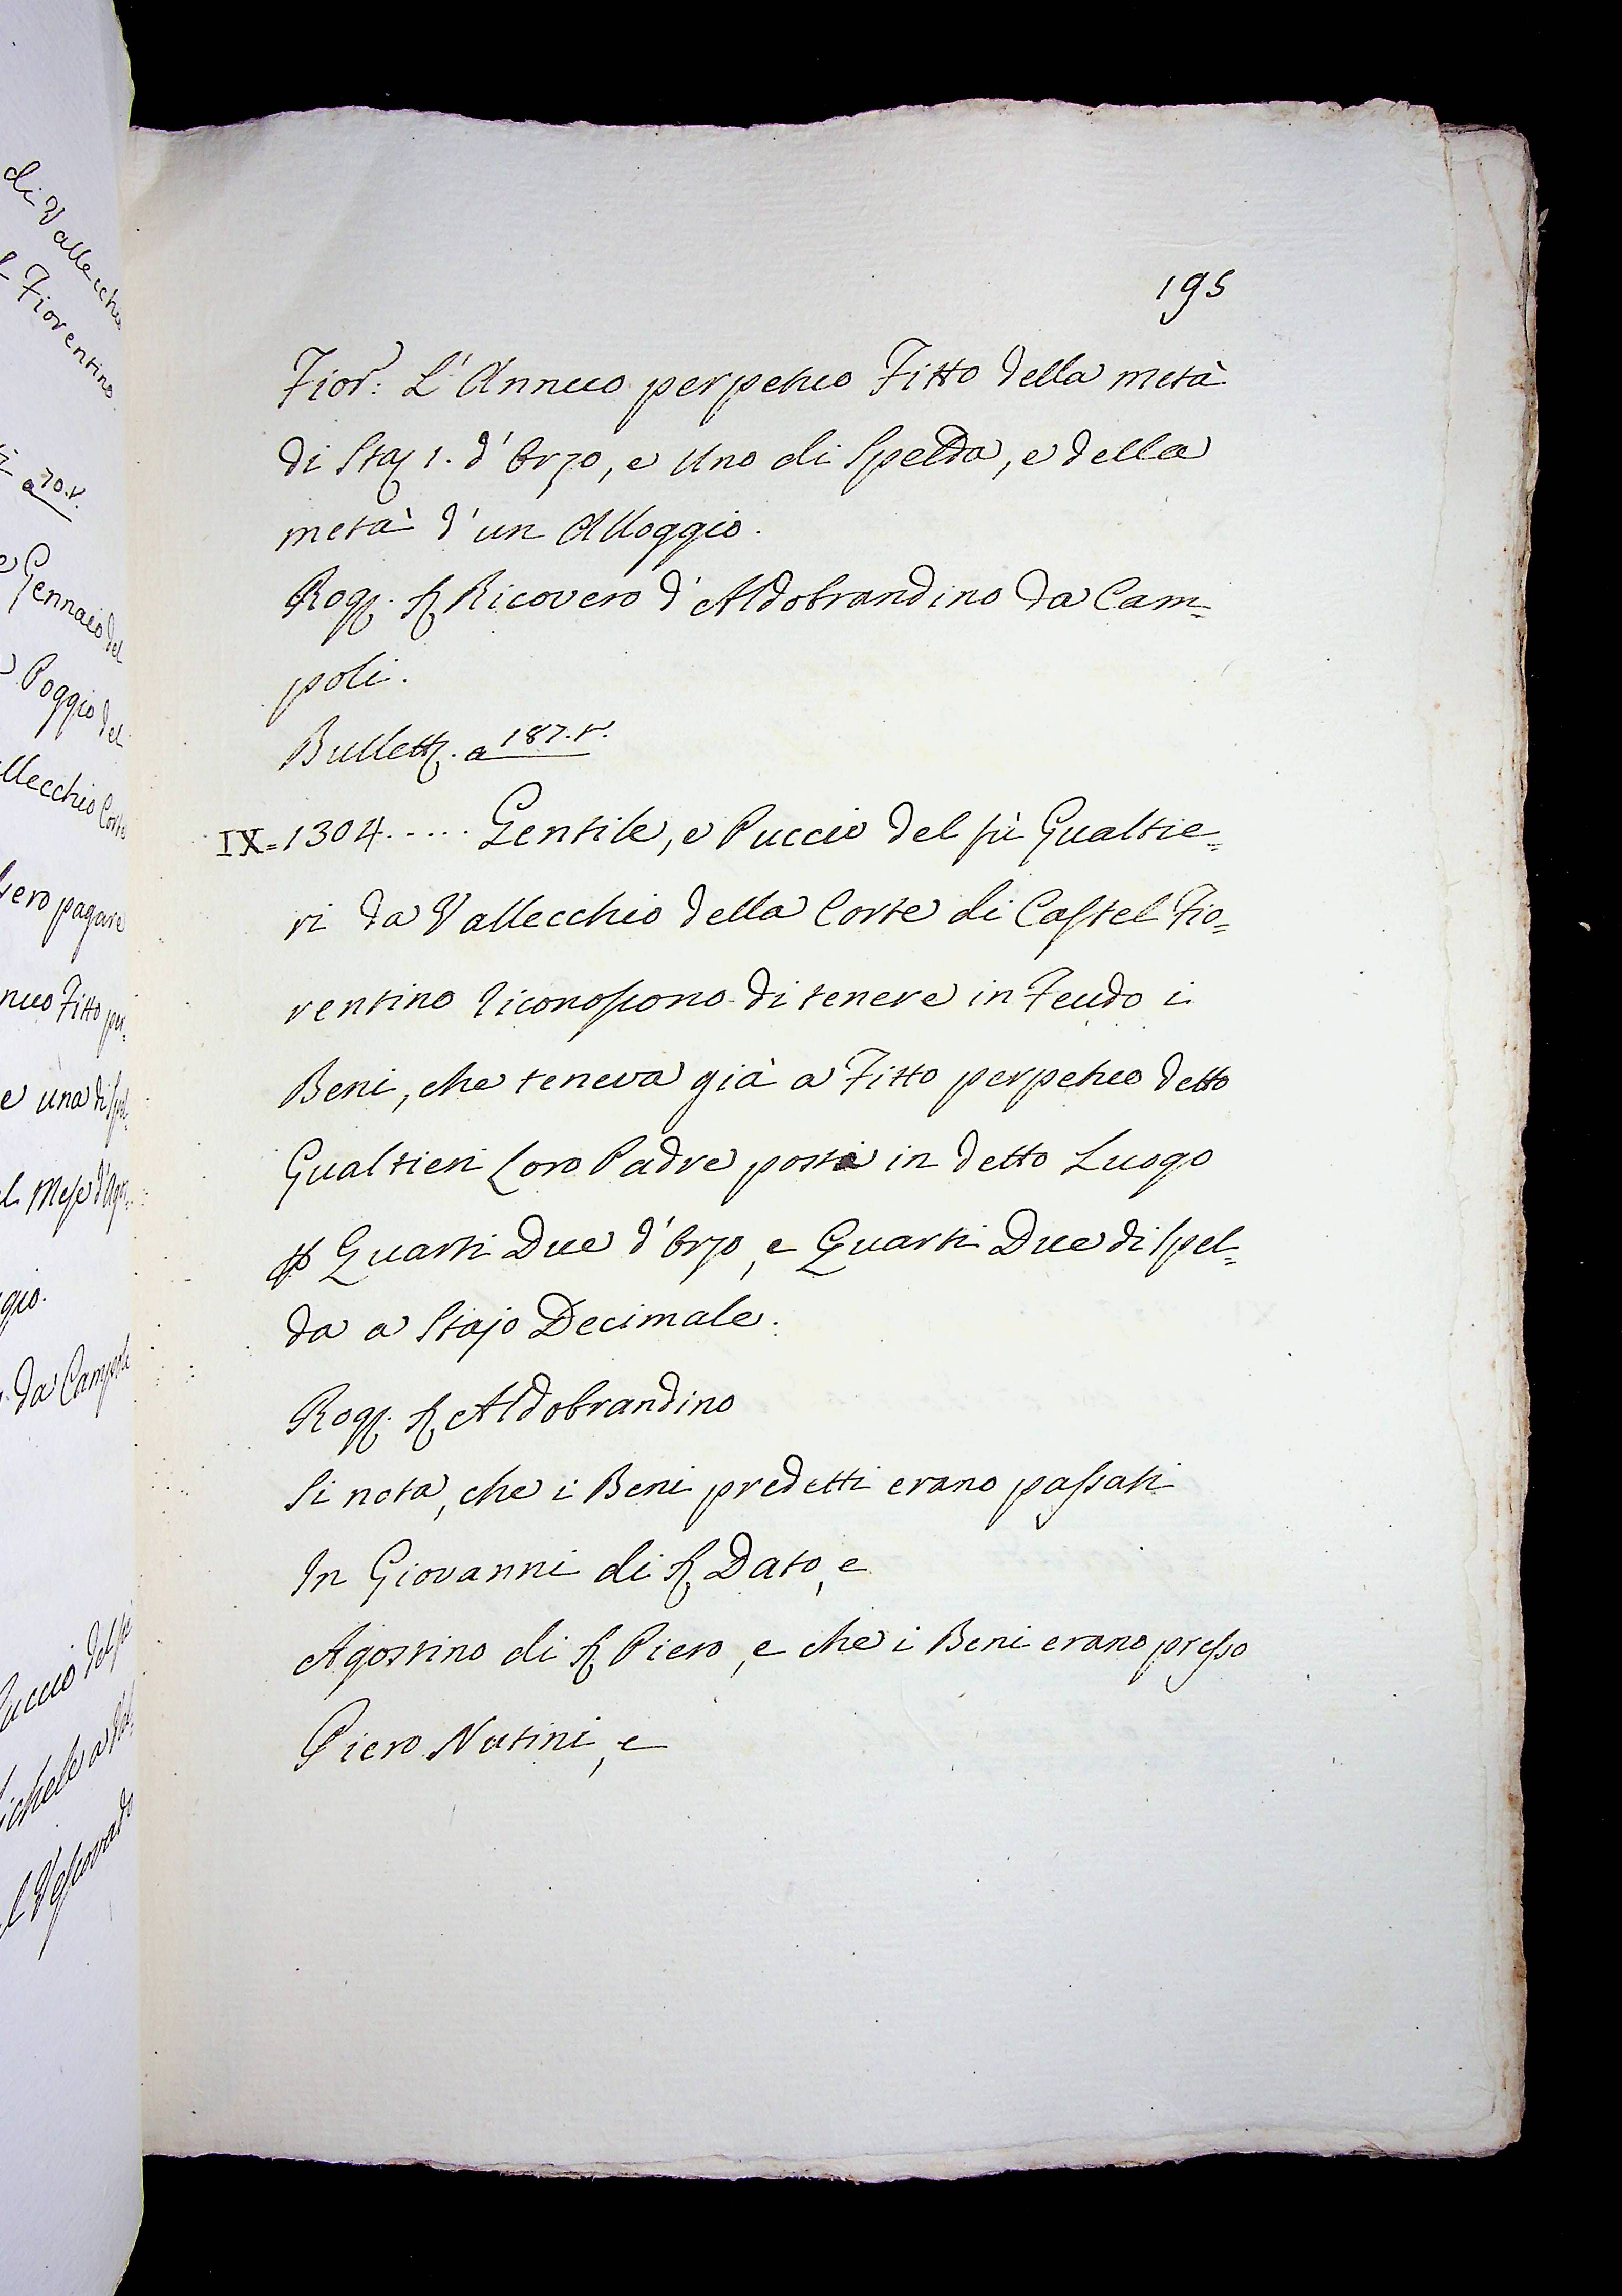 195
Fior: L'Annuo perpetuo Fitto della metà
di Staj 1. d'Orzo, e Uno di Spelda, e della
metà d'un Alloggio.
Rog. S. Ricovero d'Aldobrandino da Cam=
poli.
Bullett. a 187.r.
IX=1304..... Gentile, e Puccio del fù Gualtie=
ri da Vallecchio della Corte di Castel Fio=
rentino Riconoscono di tenere in Feudo i
Beni, che teneva già a Fitto perpetuo detto
Gualtieri Loro Padre posti in detto Luogo
p Quarti Due d'Orzo, e Quarti Due di Spel=
da a Stajo Decimale.
Rog. S. Aldobrandino
Si nota, che i Beni predetti erano passati
In Giovanni di S. Dato, e
Agostino di S. Piero, e che i Beni erano presso
Piero Nutini, e
di Vallecchio
Fiorentino
a 70.r.
Gennaio del
Poggio del
llecchio Corte
iero pagare
nuo Fitto per=
e una di Spel=
l Mese d'Ago=
gio.
da Campoli
Puccio del fù
ichele a
l Vescovado